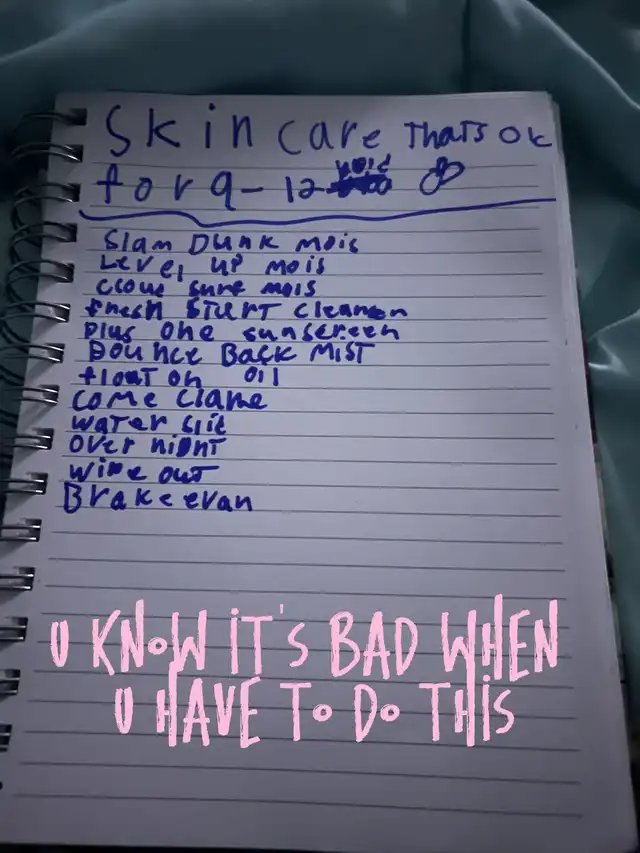 Skin care THaTS OK
for 9-12
Slam Dunk mois
Level up mois
cloue surf mois
fresh START cleanson
Plus one sunscreen
Bounce Back MIST
float on oil
come Clame
water slie
over night
wipe out
Brakeevan
U KNOW IT'S BAD WHEN
U HAVE TO DO THIS